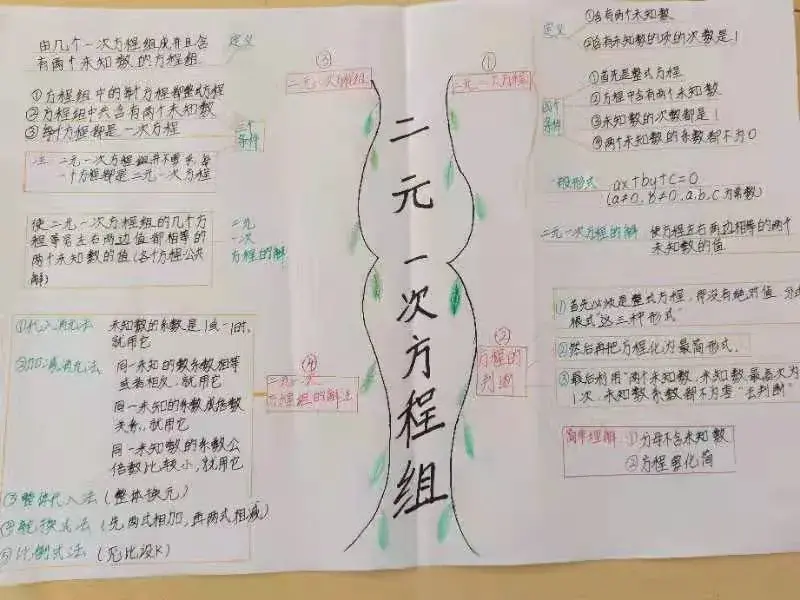 二元一次方程组
①
二元一次方程
定义
①含有两个未知数
②含有未知数的项的次数是1
四个
条件
①首先是整式方程
②方程中含有两个未知数
③未知数的次数都是1
④两个未知数的系数都不为0
一般形式
ax+by+c=0
(a≠0,b≠0,a,b,c为常数)
二元一次方程的解
使方程左右两边相等的两个
未知数的值
②
方程的
判断
①首先必须是整式方程,即没有绝对值 分式
根式"这三种形式"
②然后再把方程化为最简形式.
③最后利用"两个未知数,未知数最高次为
1次,未知数系数都不为零"去判断"
简单理解
①分母不含未知数
②方程要化简
③
二元一次方程组
定义
由几个一次方程组成并且含
有两个未知数的方程组
三个
条件
①方程组中的每个方程都整式方程
②方程组中共含有两个未知数
③每个方程都是一次方程
注: 二元一次方程组并不要求,每
一个方程都是二元一次方程
二元
一次
方程的解
使二元一次方程组的几个方
程等号左右两边值都相等的
两个未知数的值(各个方程公共
解)
④
二元一次
方程组的解法
①代入消元法
未知数的系数是1或-1时,
就用它
②加减消元法
同一未知的数系数相等
或者相反,就用它
同一未知的系数成倍数
关系,就用它
同一未知数的系数公
倍数比较小,就用它
③整体代入法(整体换元)
④轮换式法(先两式相加,再两式相减)
⑤比例式法(见比设K)